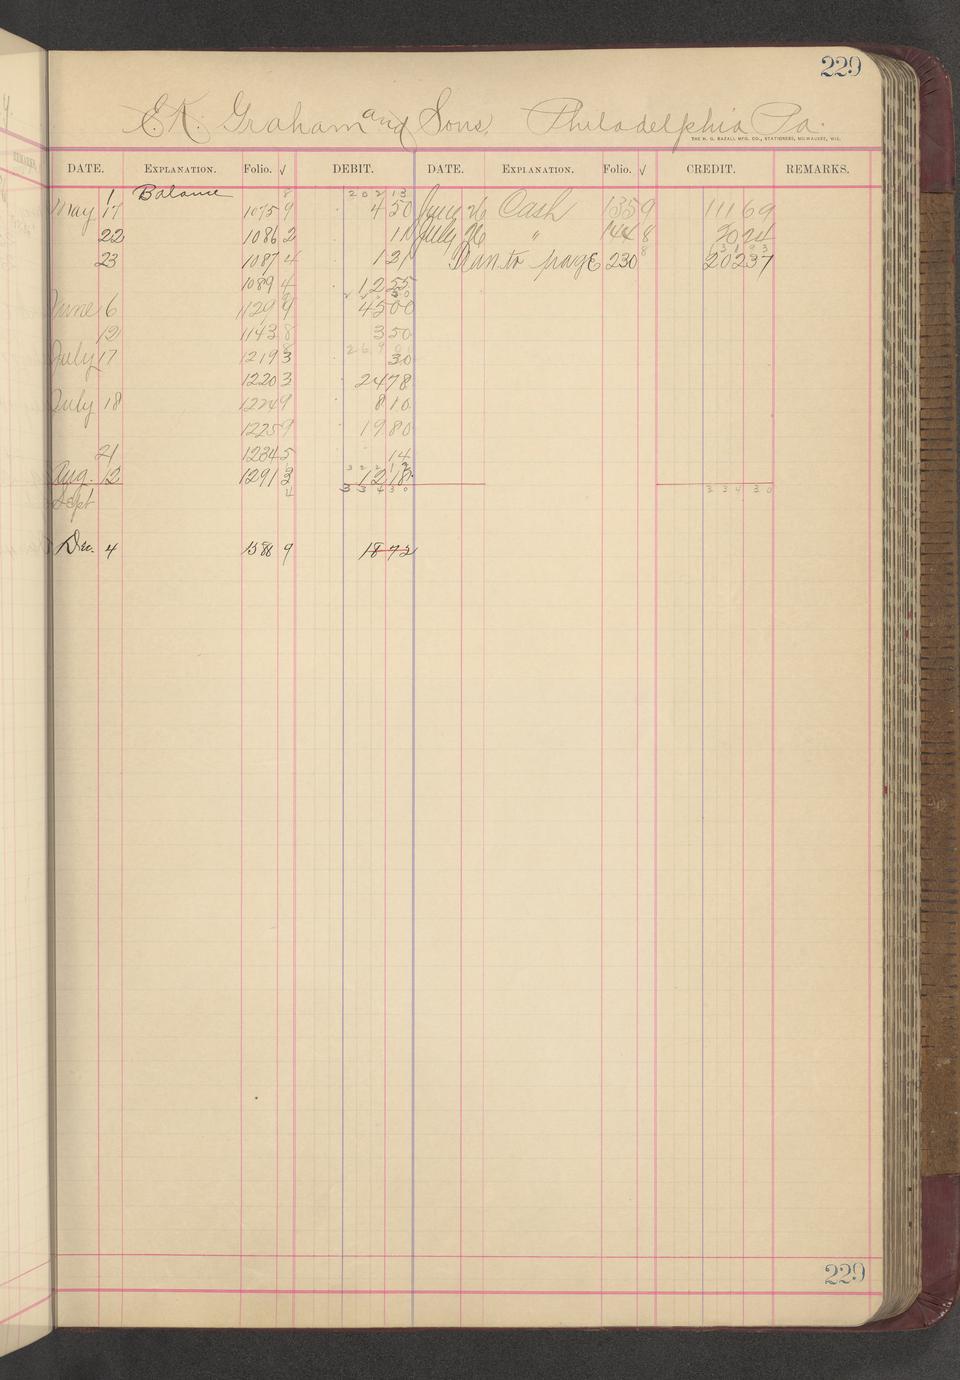 229
E.K. Graham and Sons, Philadelphia Pa.
THE H. G. RAZALL MFG. CO., STATIONERS, MILWAUKEE, WIS.
DATE. EXPLANATION. Folio. √ DEBIT. DATE. EXPLANATION. Folio. √ CREDIT. REMARKS.
1 Balance 8 202 13
May 17 1075 9 4 50 June 26 Cash 135 9 111 69
22 1086 2 11 July 26 " 144 8 20 24
131 93
23 1087 4 1 21 Tran. to page 230 8 202 37
1089 4 12 55
June 6 1129 9 45 00
12 1143 8 3 50
July 17 1219 3 30
1220 3 24 78
July 18 1224 9 8 10
1225 9 19 80
21 1234 5 14
322 12
Aug. 12 1291 3 12 18
Sept 4 334 30 334 30
Dec. 4 1588 9 18 72
229